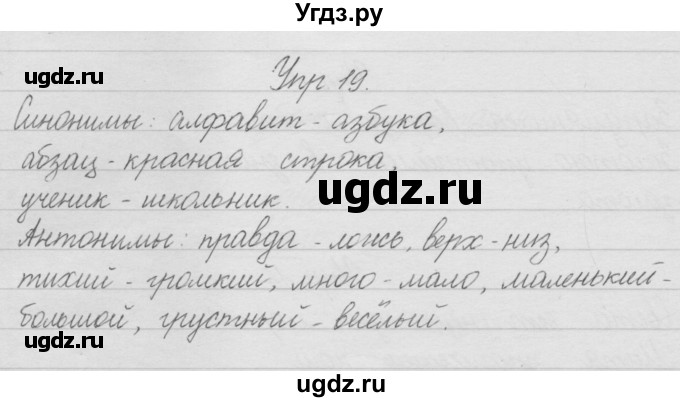 Угдз.ру
ugdz.ru ugdz.ru
Упр 19.
Синонимы: алфавит - азбука,
абзац - красная строка,
ученик - школьник.
ugdz.ru
Антонимы: правда - ложь, верх - низ,
тихий - громкий, много - мало, маленький -
большой, грустный - весёлый.
ugdz.ru ugdz.ru
ugdz.ru